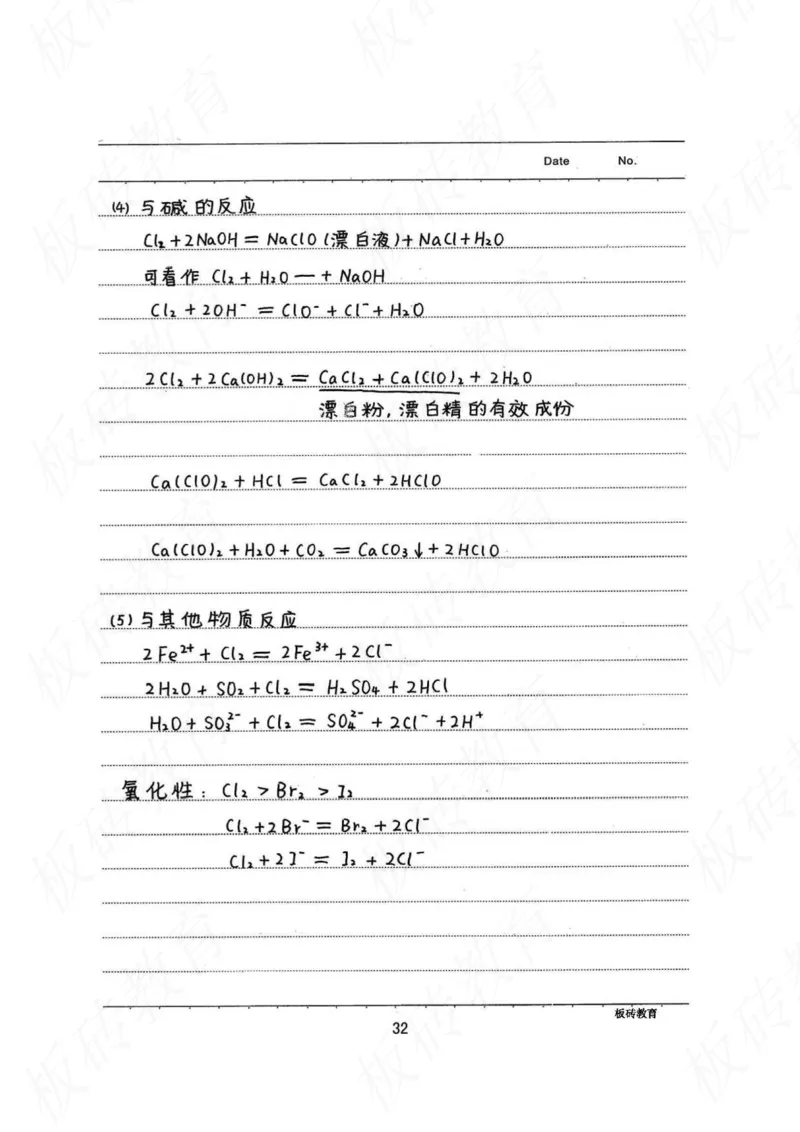 Date No.
(4) 与碱的反应
Cl₂+2NaOH = NaClO (漂白液)+ NaCl+H₂O
可看作 Cl₂ + H₂O — + NaOH
Cl₂ + 2OH⁻ = ClO⁻ + Cl⁻ + H₂O
2Cl₂ + 2Ca(OH)₂ = CaCl₂ + Ca(ClO)₂ + 2H₂O
漂白粉, 漂白精的有效成份
Ca(ClO)₂ + HCl = CaCl₂ + 2HClO
Ca(ClO)₂ + H₂O + CO₂ = CaCO₃↓ + 2HClO
(5) 与其他物质反应
2Fe²⁺ + Cl₂ = 2Fe³⁺ + 2Cl⁻
2H₂O + SO₂ + Cl₂ = H₂SO₄ + 2HCl
H₂O + SO₃²⁻ + Cl₂ = SO₄²⁻ + 2Cl⁻ + 2H⁺
氧化性: Cl₂ > Br₂ > I₂
Cl₂ + 2Br⁻ = Br₂ + 2Cl⁻
Cl₂ + 2I⁻ = I₂ + 2Cl⁻
板砖教育
32